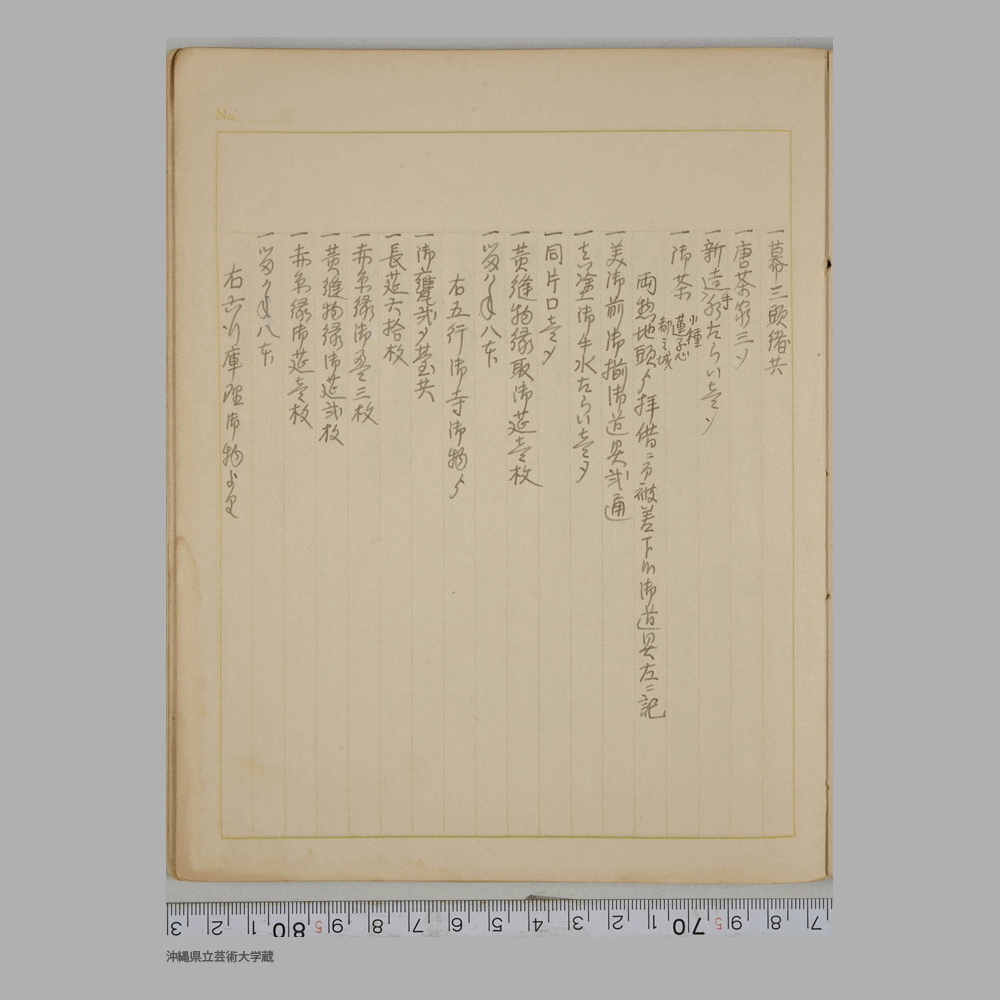 No.
一幕三頭緒共
一唐茶家三ツ
一新造手水たらい壱ツ
一御茶 小種 蓮子心 都之城
両惣地頭ゟ拝借ニ而被差下候御道具左ニ記
一美御前御揃御道具弐通
一真塗御手水たらい壱ツ
一同片口壱ツ
一黄縫物縁取御莚壱枚
八本
右五行御寺御物ゟ
一御甕弐ツ台共
一長莚六拾枚
一赤糸縁御畳三枚
一黄縫物縁御莚弐枚
一赤糸縁御莚壱枚
八本
右六行庫理御物より
3 2 1 80 5 9 8 7 6 5 4 3 2 1 70 5 9 8 7
沖縄県立芸術大学蔵